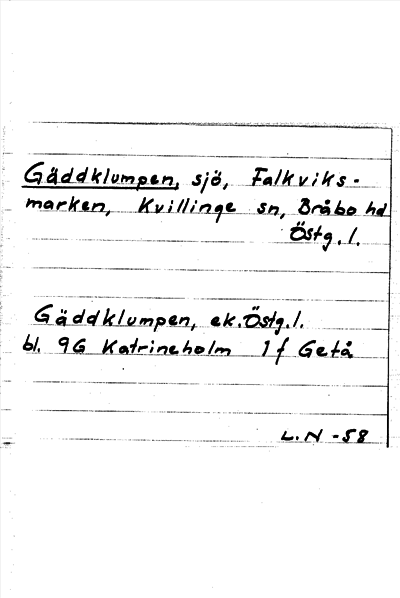 Gäddklumpen, sjö, Falkviks-
marken, Kvillinge sn, Bråbo hd
Östg. l.
Gäddklumpen, ek. Östg. l.
bl. 9G Katrineholm 1 f Getå
L. N -58